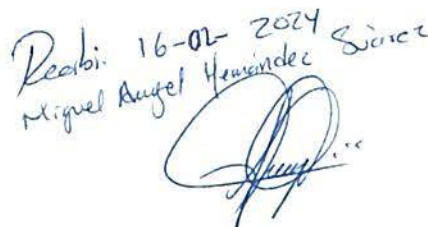 Recibi. 16-02-2024
Miguel Angel Hernández Suárez